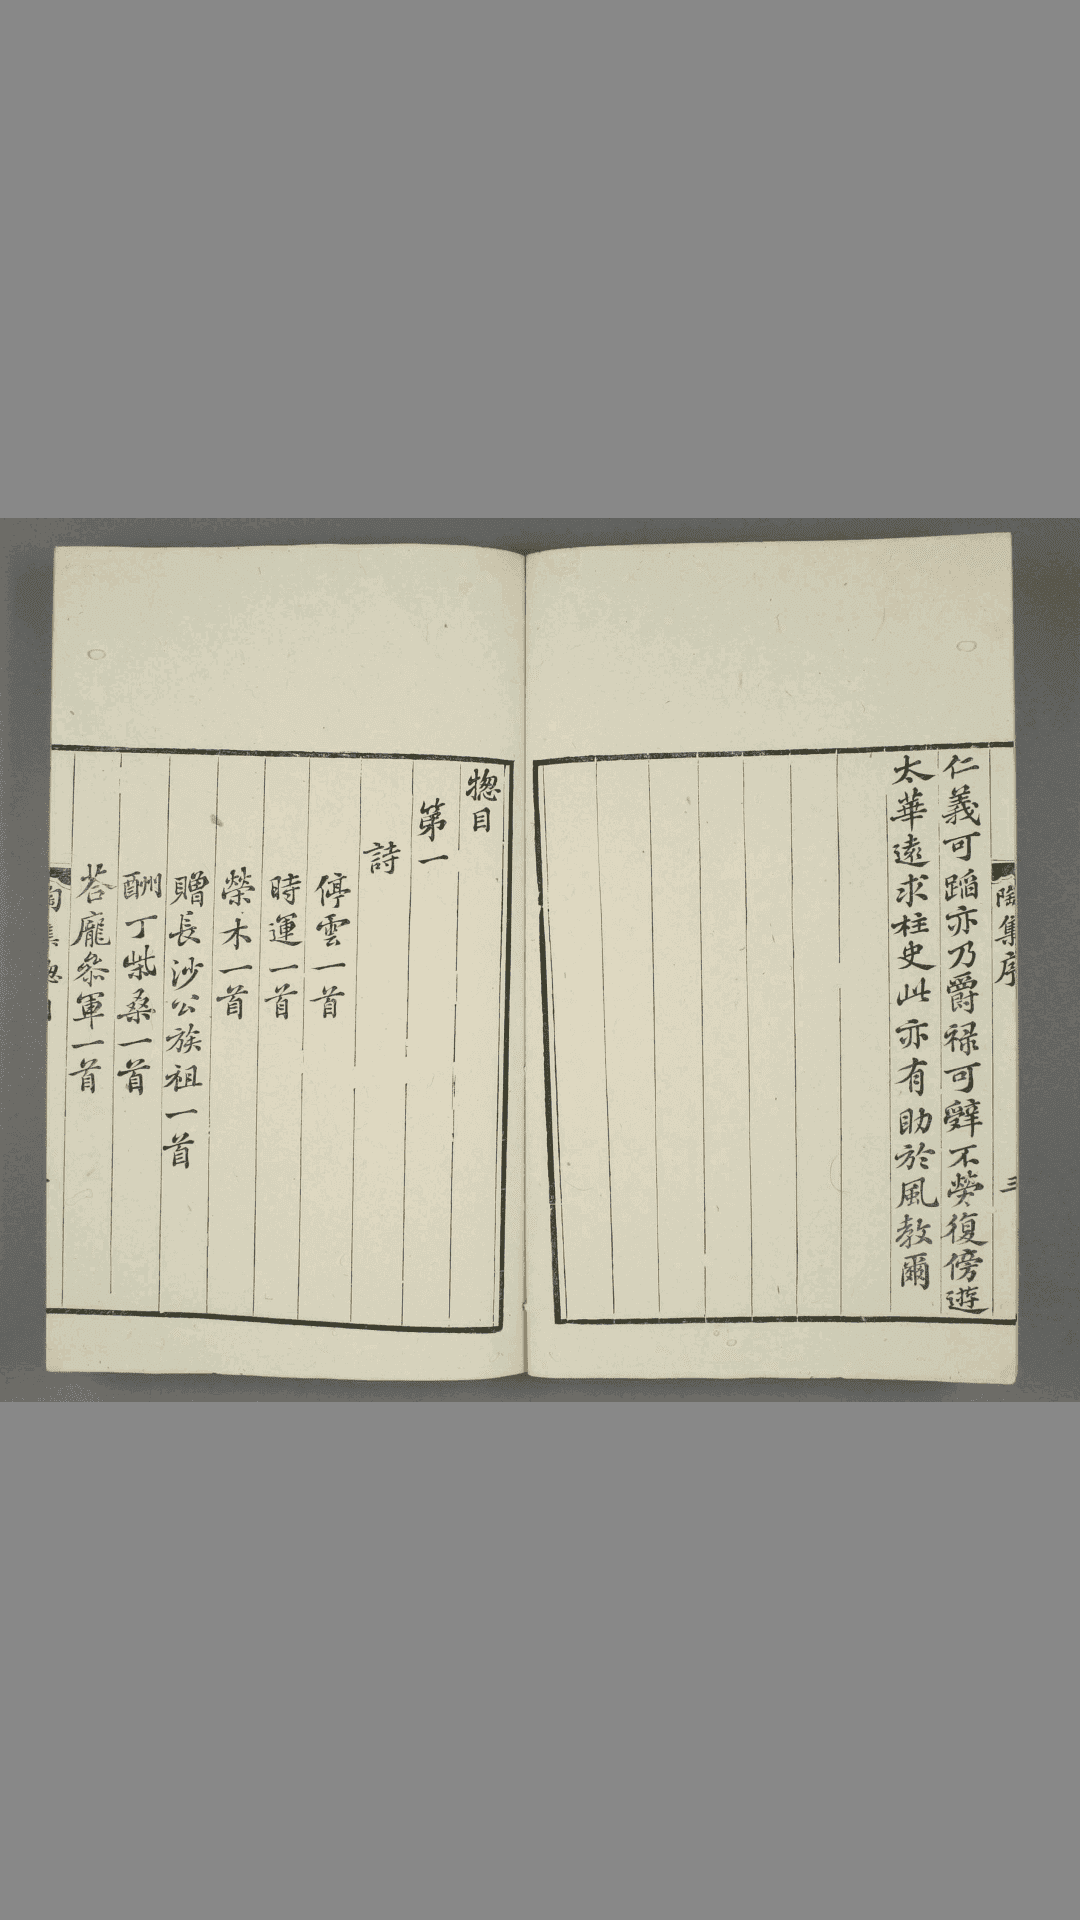 陶集序 三
仁義可蹈亦乃爵禄可辭不勞復傍遊
太華遠求柱史此亦有助於風教爾
揔目
第一
詩
停雲一首
時運一首
榮木一首
贈長沙公族祖一首
酬丁柴桑一首
荅龐叅軍一首
陶集揔目